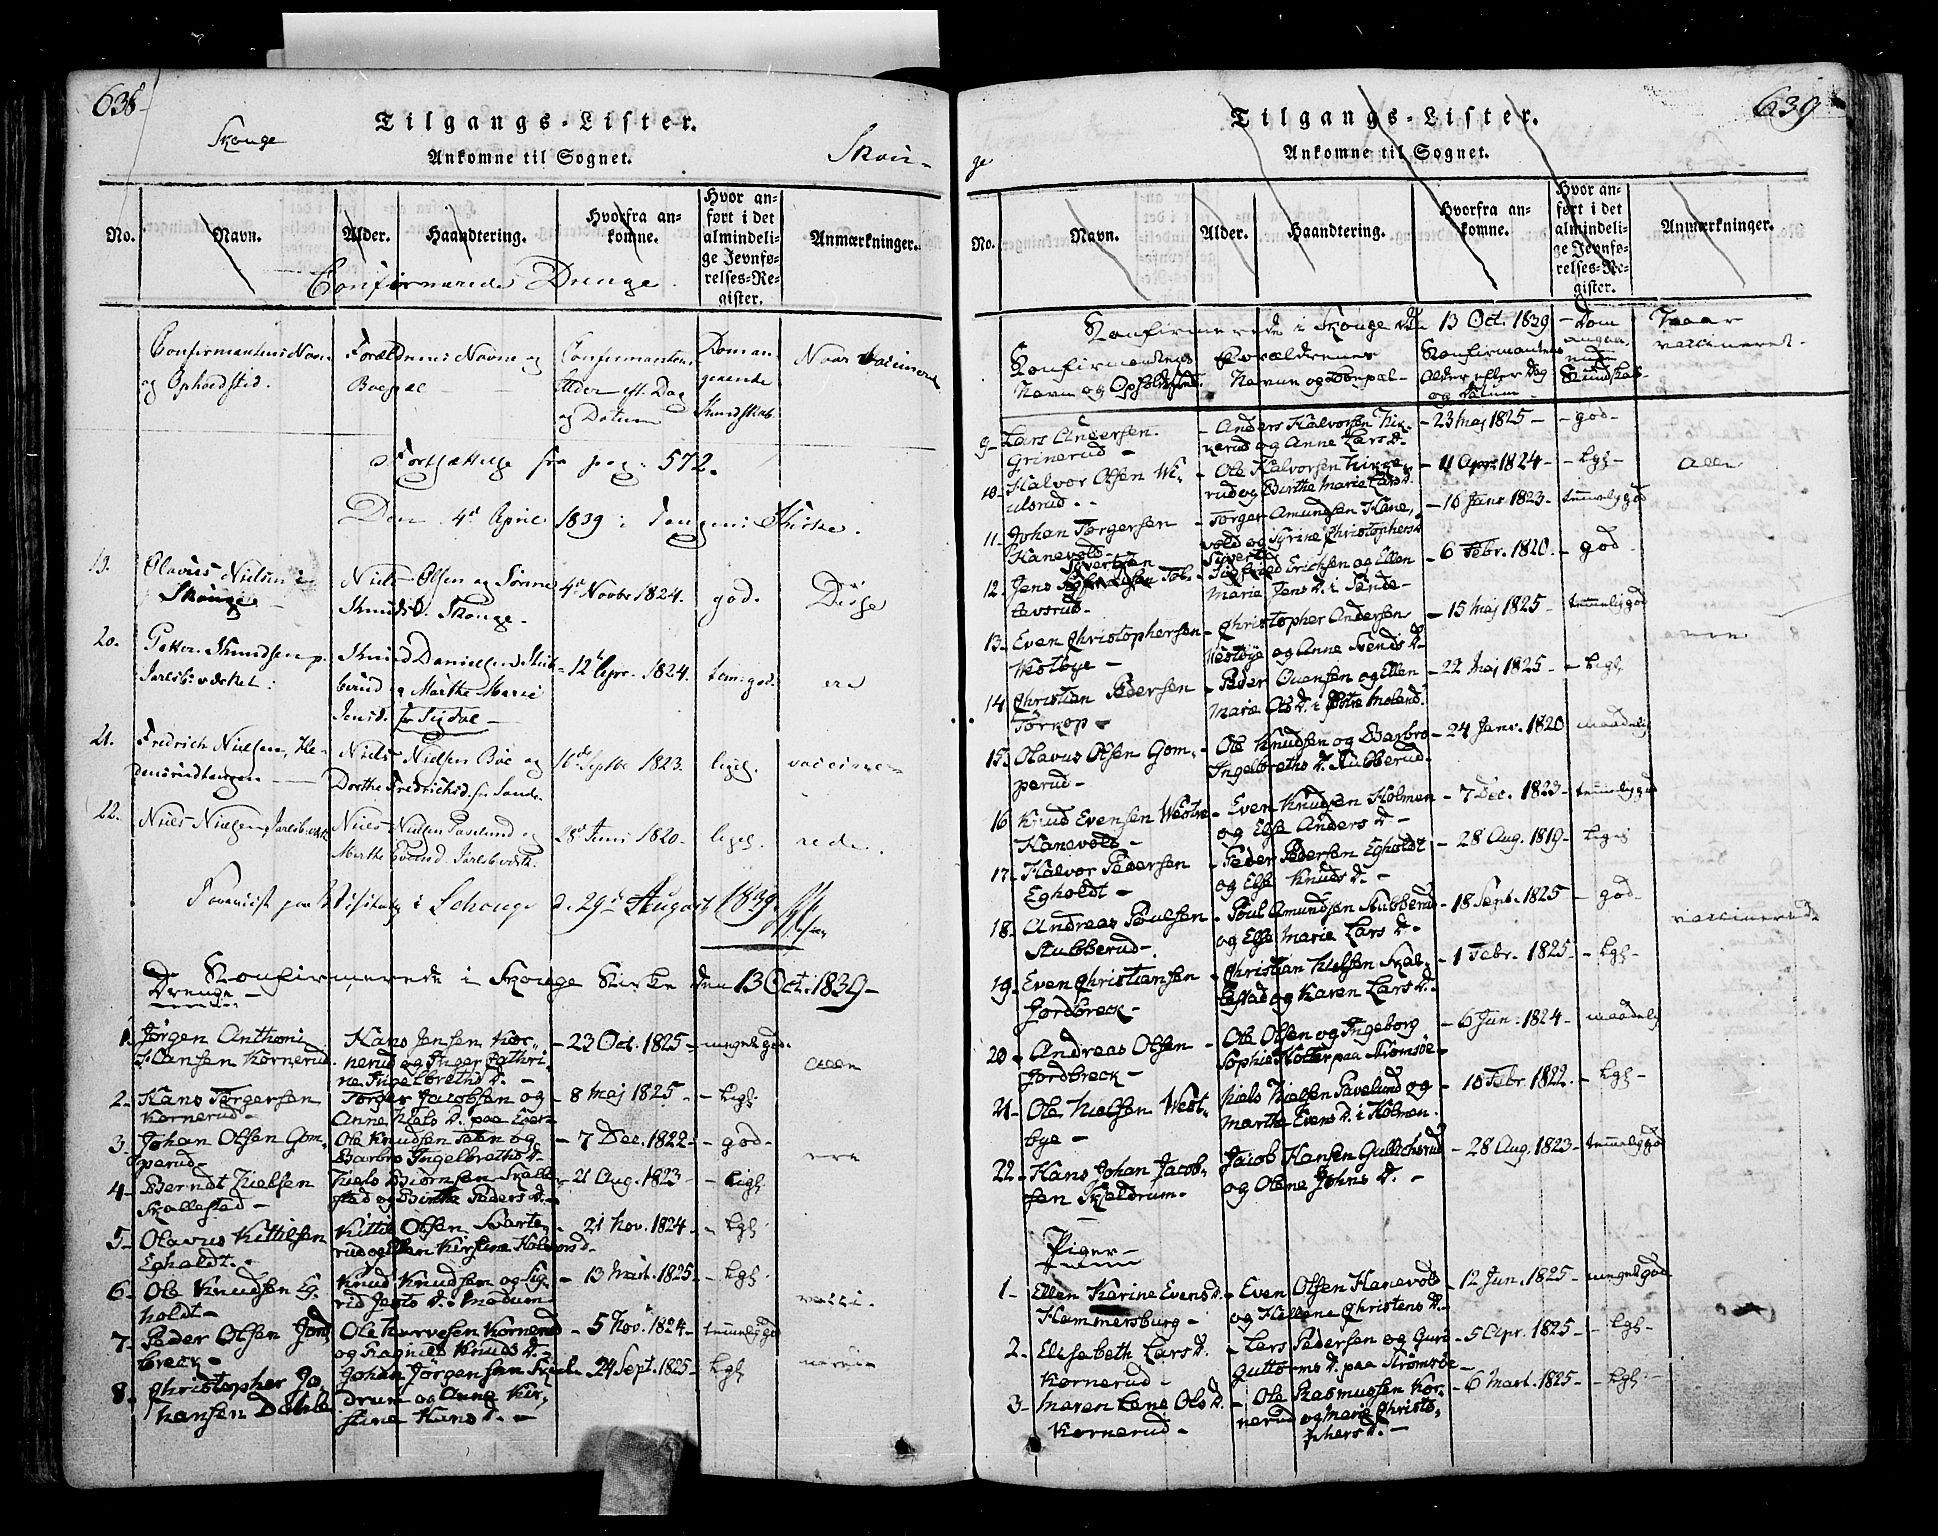 638
Skouge
Tilgangs-Lister.
Ankomne til Sognet.
Skou-
No.
Navn.
Alder.
Haandtering.
Hvorfra an-
komne.
Hvor an-
ført i det
almindeli-
ge Jevnfø-
relses-Re-
gister.
Anmærkninger.
Confirmerede Drenge.
Confirmantens Navn
og Opholdstid.
Forældrenes Navne og
Boepæl
Confirmantens
Alder eft. Dag
og Datum
Dom an-
gaaende
Kundskab
Naar vaccineret
Fortsættelse fra pag: 572.
Den 4de April 1839 i Tangens Kirke.
19.
Olavus Nielsen i
Skouge
Niels Olsen og Sønne
Knudsd. Skouge.
4de Novbr 1824.
god.
Disse
20.
Knudsen p.
Jarlsb. værket.
Knud Danielsen Stub-
berud og Marthe Marie
Jensd. fr Sigdal
12te Apr. 1824.
tem: god.
ere
21.
Fredrich Nielsen, He-
densrudtangen
Niels Nielsen Boe og
Dorthe Fredrichsd. fr Sande.
10de Septbr 1823.
ligel.
vaccine-
22.
Niels Nielsen, Jarlsb. værk
Niels Nielsen Pavelund og
Marthe Evensd. Jarlsb. værk.
28de Juni 1820.
ligel.
rede.
Foreviist paa Visitats i Schouge d. 29de August 1839.
Konfirmerede i Skouge Kirke den 13 Oct. 1839-
Drenge-
1. Jørgen Anthoni
Hansen Kornerud.
Hans Jensen Kor-
nerud og Inger Cathri-
ne Ingelbrethsd.
23 Oct. 1825
meget god.
Alle
2. Hans Torgersen
Kornerud
Torger Jacobsen og
Anne Niels d. paa Eger
8 Maj 1825
Ligs.
3. Johan Olsen Gom-
perud
Ole Knudsen Teten og
Barbro Ingelbreths d.
7 Dec. 1822
god
ere
4. Berndt Nielsen
Skallestad
Niels Biørnsen Skalle-
stad og Birthe Peders d.
21 Aug. 1823
Ligs
5. Olavus Kittilsen
Egholdt.
Kittil Olsen Svarte-
rud og Ellen Kirstine Halvors d.
21 Nov. 1824
Lgs
6. Ole Knudsen Eg-
holdt
Knud Knudsen og Sig-
rid Josts d. Modum
13 Mart. 1825
Lgs
vacci-
7. Peder Olsen Jord-
breck
Ole Narvesen Kornerud
og Ragnild Knuds d.
5 Nov. 1824
temmelig god
nerede
8. Christopher Jo-
hansen Dahle
Johan Jørgensen Skjel-
drum og Anne Kir-
stine Hans d.
24 Sept. 1825
Lgs
639
ge
Tilgangs-Lister.
Ankomne til Sognet.
No.
Navn.
Alder.
Haandtering.
Hvorfra an-
komne.
Hvor an-
ført i det
almindeli-
ge Jevnfø-
relses-Re-
gister.
Anmærkninger.
Konfirmerede i Skouge den 13 Oct. 1839
Konfirmandens
Navn og Opholdssted.
Forældrenes
Navn og Boepæl
Konfirmantens
Alder efter Dag
og Datum
Dom
angaa-
ende
Kundskab
Naar
vaccineret.
9- Lars Andersen
Grinerud
Anders Halvorsen Kir-
nerud og Anne Lars d.
23 Maj 1825
god
10- Halvor Olsen We-
ulsrud
Ole Halvorsen Kirne-
rud og Birthe Marie Lars d.
11 Apr. 1824
Lgs
Alle
11- Johan Torgersen
Hanevold
Torger Amundsen Hane-
vold og Syrine Christophers d
16 Janr 1823
temmelig god
12. Jens Syvertsen Tol-
lavsrud
Syvert Erichsen og Ellen
Marie Jens d. i Sande
6 Febr. 1820
god
13- Even Christophersen
Westbye
Christopher Andersen
Westbye og Anne Svends d.
15 Maj 1825
temmelig god
ere
14 Christian Pedersen
Torkop
Peder Ouensen og Ellen
Marie Ols d. i Østre Moland
22 Maj 1825
Ligs
15. Olavus Olsen Gom-
perud
Ole Knudsen og Barbro
Ingelbreths d. Stubberud
24 Janr. 1820
maadelig
16 Knud Evensen Westre
Hanevold
Even Knudsen Holmen
og Else Anders d.
7 Dec. 1823
temmelig god
17. Halvor Pedersen
Egholdt
Peder Pedersen Egholdt
og Else Knuds d.
28 Aug. 1819
Ligs
18- Andreas Poulsen
Stubberud
Poul Amundsen Stubberud
og Else Marie Lars d.
18 Sept. 1825
god
vaccinerede
19- Even Christiansen
Jordbreck
Christian Nielsen Skal-
lestad og Karen Lars d.
1 Febr. 1825
Lgs
20- Andreas Olsen
Jordbreck
Ole Olsen og Ingeborg
Sophie Kolter paa Strømsøe
6 Jun. 1824
maadelig
21- Ole Nielsen West-
bye
Niels Nielsen Pavelund og
Marthe Evens d. i Holmen
10 Febr. 1822.
Lgs
22- Hans Johan Jacob-
sen Skjeldrum
Jacob Hansen Gullichsrud
og Olene Johns d.
28 Aug. 1823
temmelig god
Piger-
1- Ellen Karine Evens d.
Hammersburg
Even Olsen Hanevold
og Hellene Christens d.
12 Jun. 1825
meget god
2- Elisabeth Lars d.
Kornerud
Lars Pedersen og Guri
Guttorms d. paa Strømsøe
5 Apr. 1825
Lgs
3- Maren Lene Ols d.
Kornerud
Ole Rasmussen Kor-
nerud og Marie Christo-
phers d.
6 Mart. 1825
Lgs